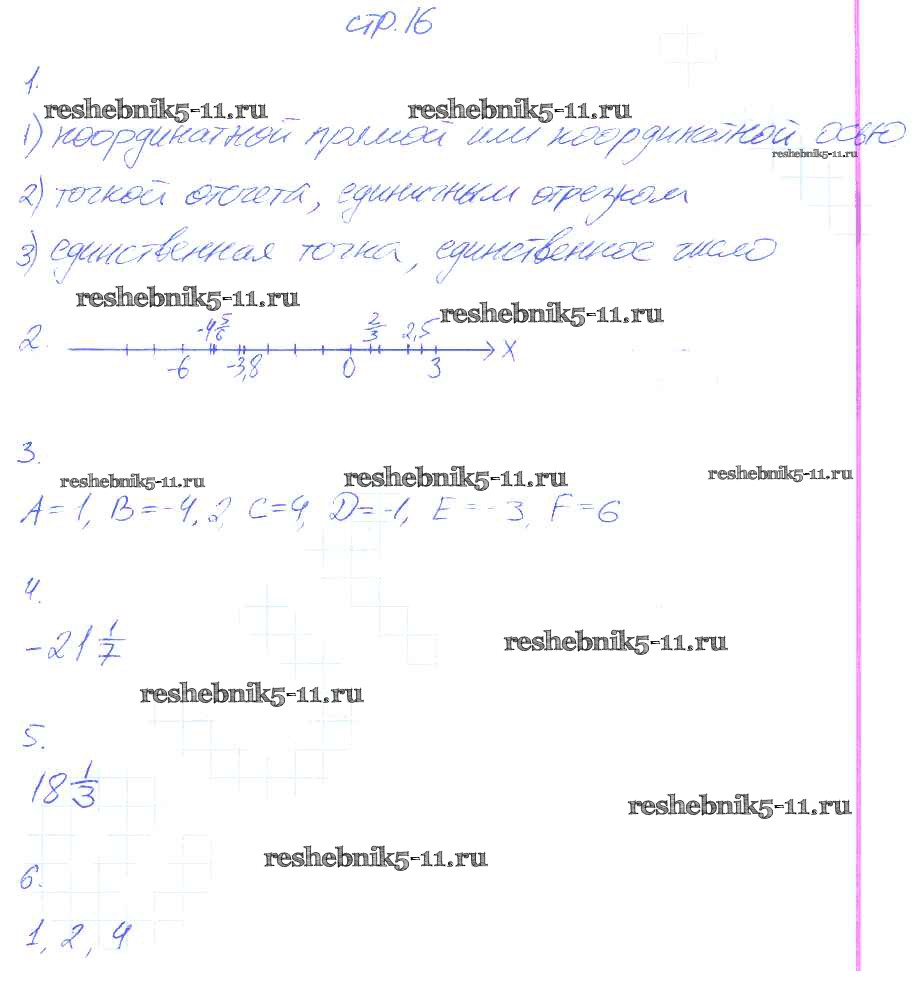 стр. 16
1.
reshebnik5-11.ru reshebnik5-11.ru
1) координатной прямой или координатной осью
reshebnik5-11.ru
2) точкой отсчета, единичным отрезком
3) единственная точка, единственное число
reshebnik5-11.ru reshebnik5-11.ru
-4 5/6 2/3 2,5
2. x
-6 -3,8 0 3
3.
reshebnik5-11.ru reshebnik5-11.ru reshebnik5-11.ru
A = 1, B = -4, 2, C = 4, D = -1, E = -3, F = 6
4.
-21 1/7
reshebnik5-11.ru
reshebnik5-11.ru
5.
18 1/3
reshebnik5-11.ru
reshebnik5-11.ru
6.
1, 2, 4